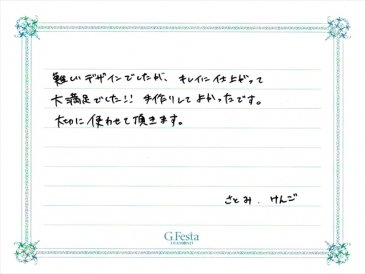 難しいデザインでしたが、キレイに仕上がって
大満足でした!! 手作りしてよかったです。
大切に使わせて頂きます。
さとみ．けんご
G.Festa
DIAMOND